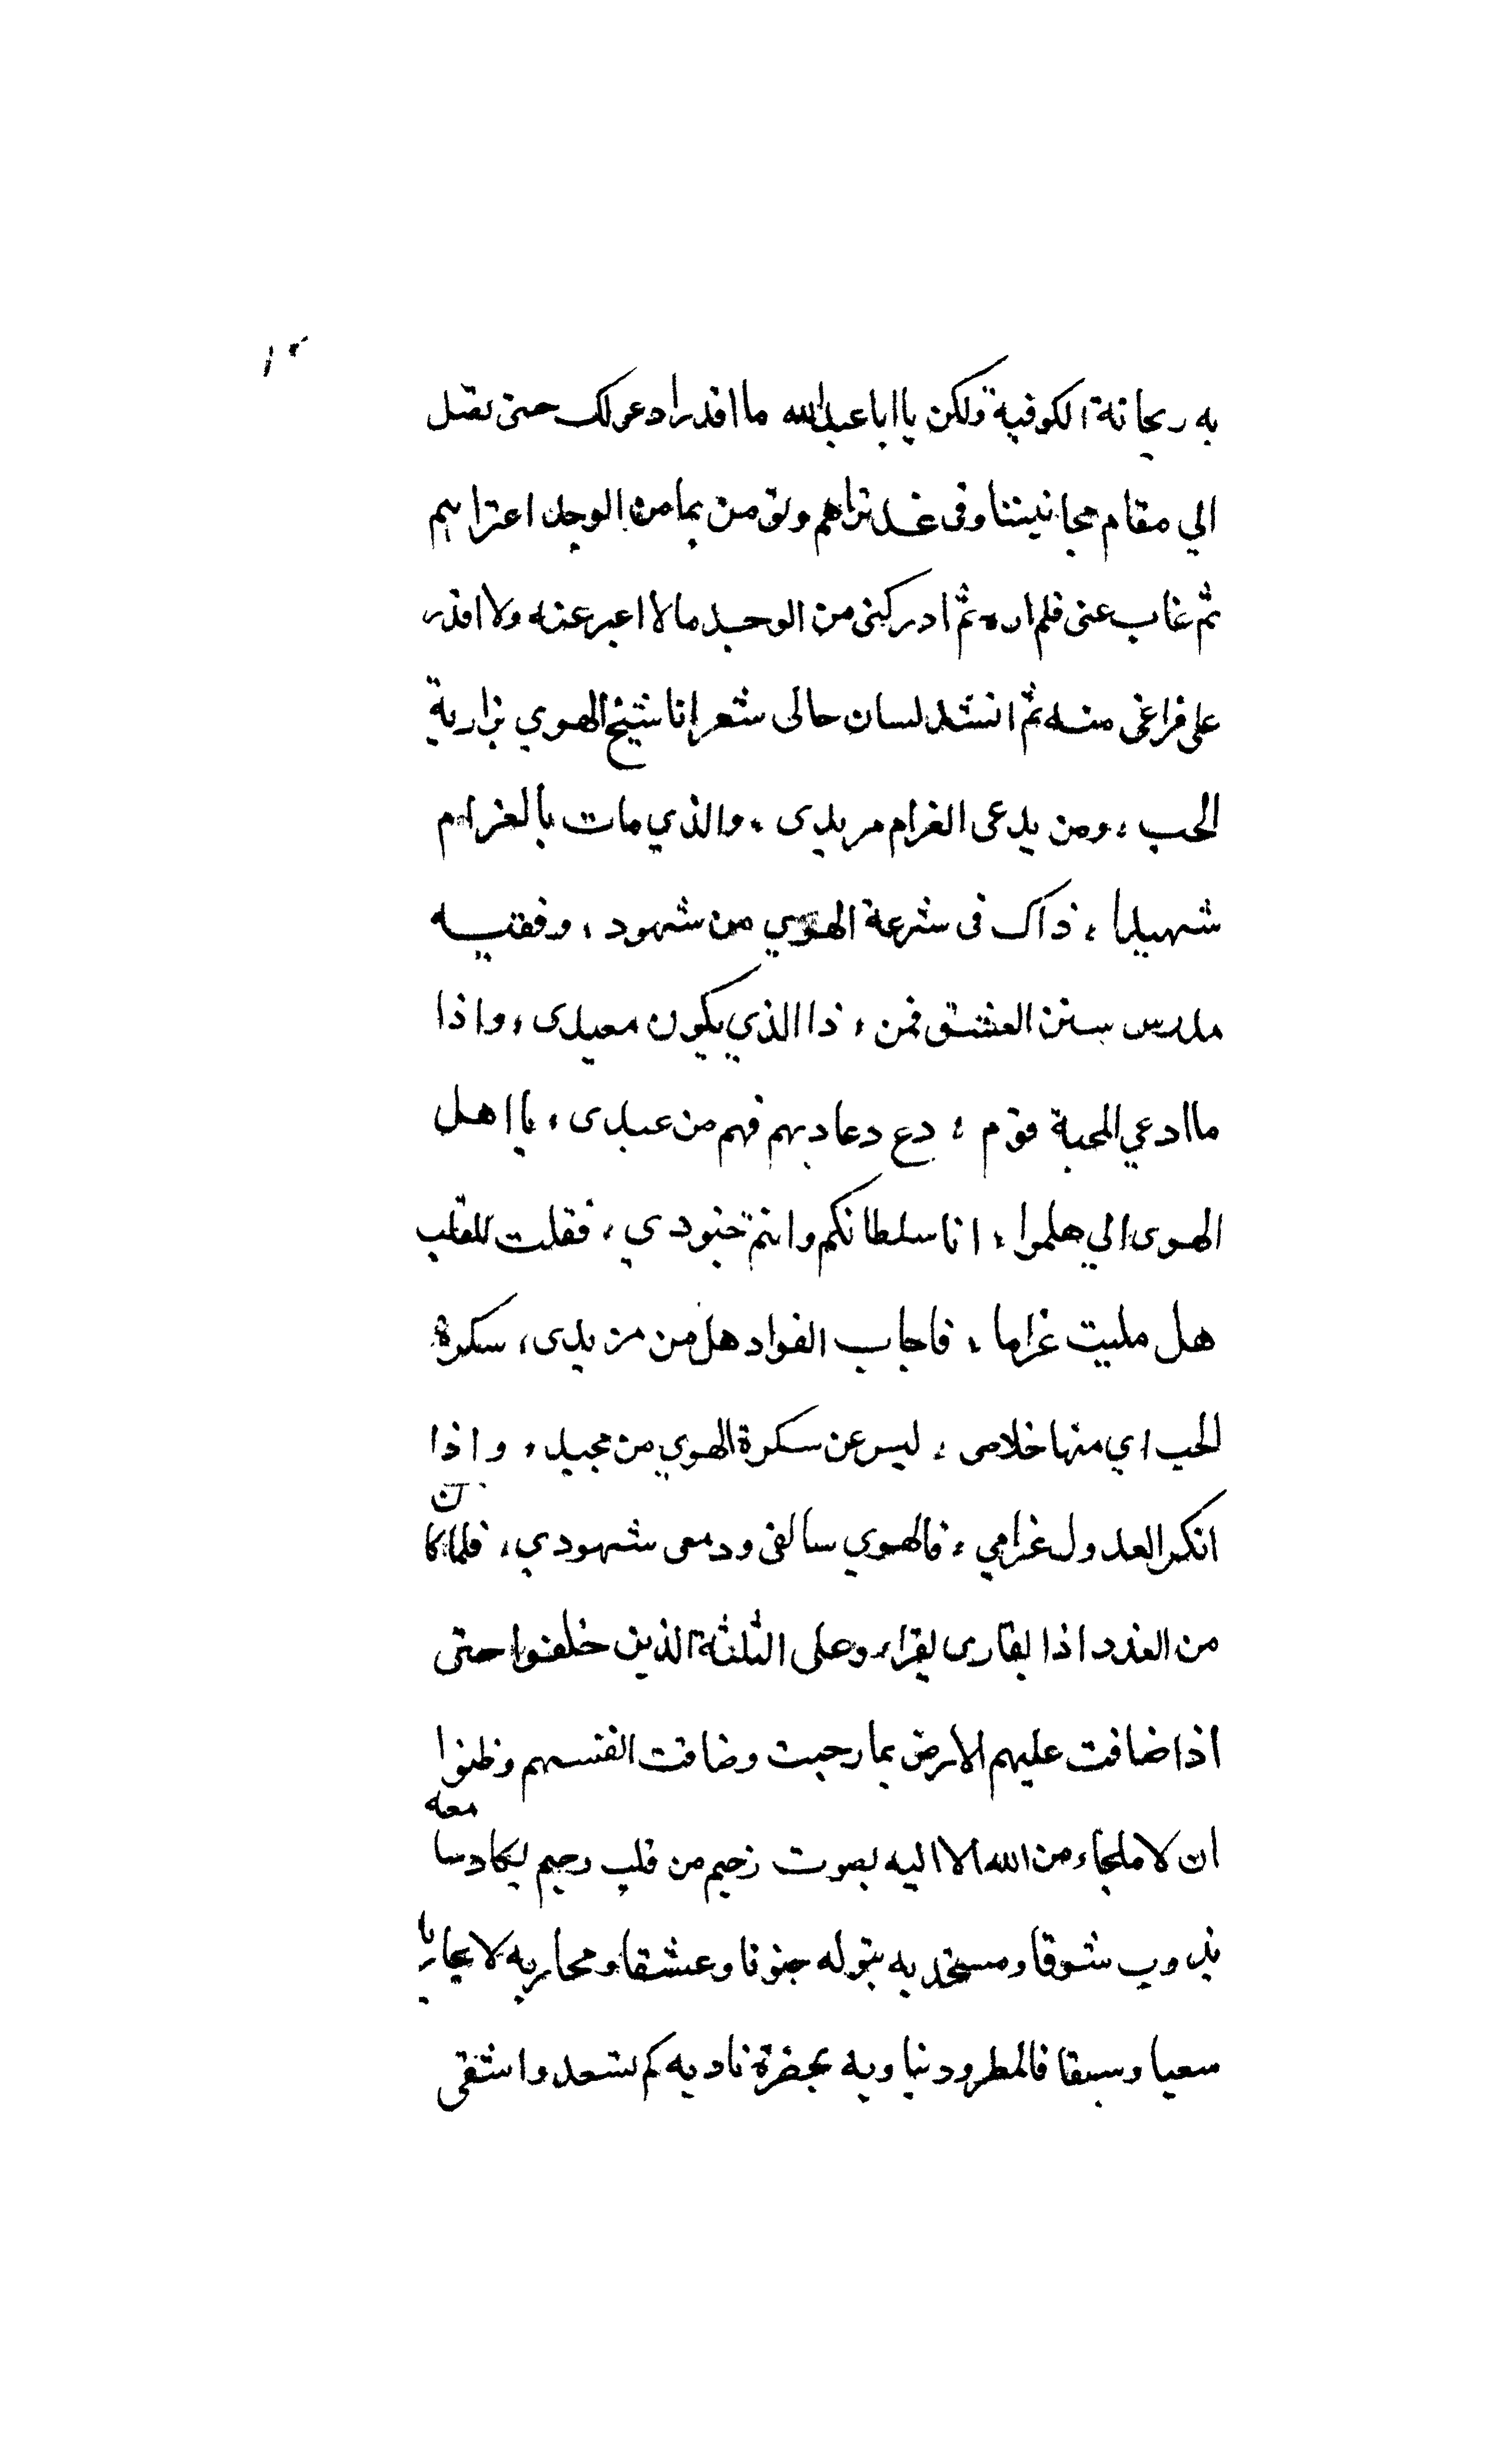 ١٣
به ريحانة الكوفية ولكن يا ابا عبدالله ما اقدر ادعولك حتى تصل
الي مقام مجانيننا وفى غد تراهم وتؤمن بما من الوجد اعتراهم
ثم غاب عنى فلم اره ثم ادركنى من الوجد مالا اعبر عنه ولا اقدر
على فراغى منه ثم انشد لسان حالى شعر انا شيخ الهوي بزاوية
الحب ، ومن يدعى الغرام مريدى ، والذي مات بالغرام
شهيدا ، ذاك فى شرعة الهوي من شهود ، وفقيه
مدرس بسنن العشق فمن ، ذا الذي يكون معيدى ، واذا
ما ادعي المحبة قوم ، دع دعاويهم فهم من عبيدى ، يا اهل
الهوى الي هلموا ، انا سلطانكم وانتم جنودي ، فقلت للقلب
هل مليت غراما ، فاجاب الفواد هل من مزيدى ، سكرة
الحب اي منها خلاصى ، ليس عن سكرة الهوي من محيد ، واذا
انكر العدول غرامي ، فالهوي سالفى ودمعى شهودي ، فلما كان
من الغدد اذا بقارى يقراء وعلى الثلثة الذين خلفوا حتى
اذا ضاقت عليهم الارض بما رحبت وضاقت انفسهم وظنوا
ان لا ملجاء من الله الا اليه بصوت رخيم من قلب رحيم يكاد سامعه
يذوب شوقا ومستخديه بتوله جنونا وعشقا ومحاربه لا يجاريا
سعيا وسبقا فالمطرود بناويه بحضرة ناديه كم تسعد واشقى